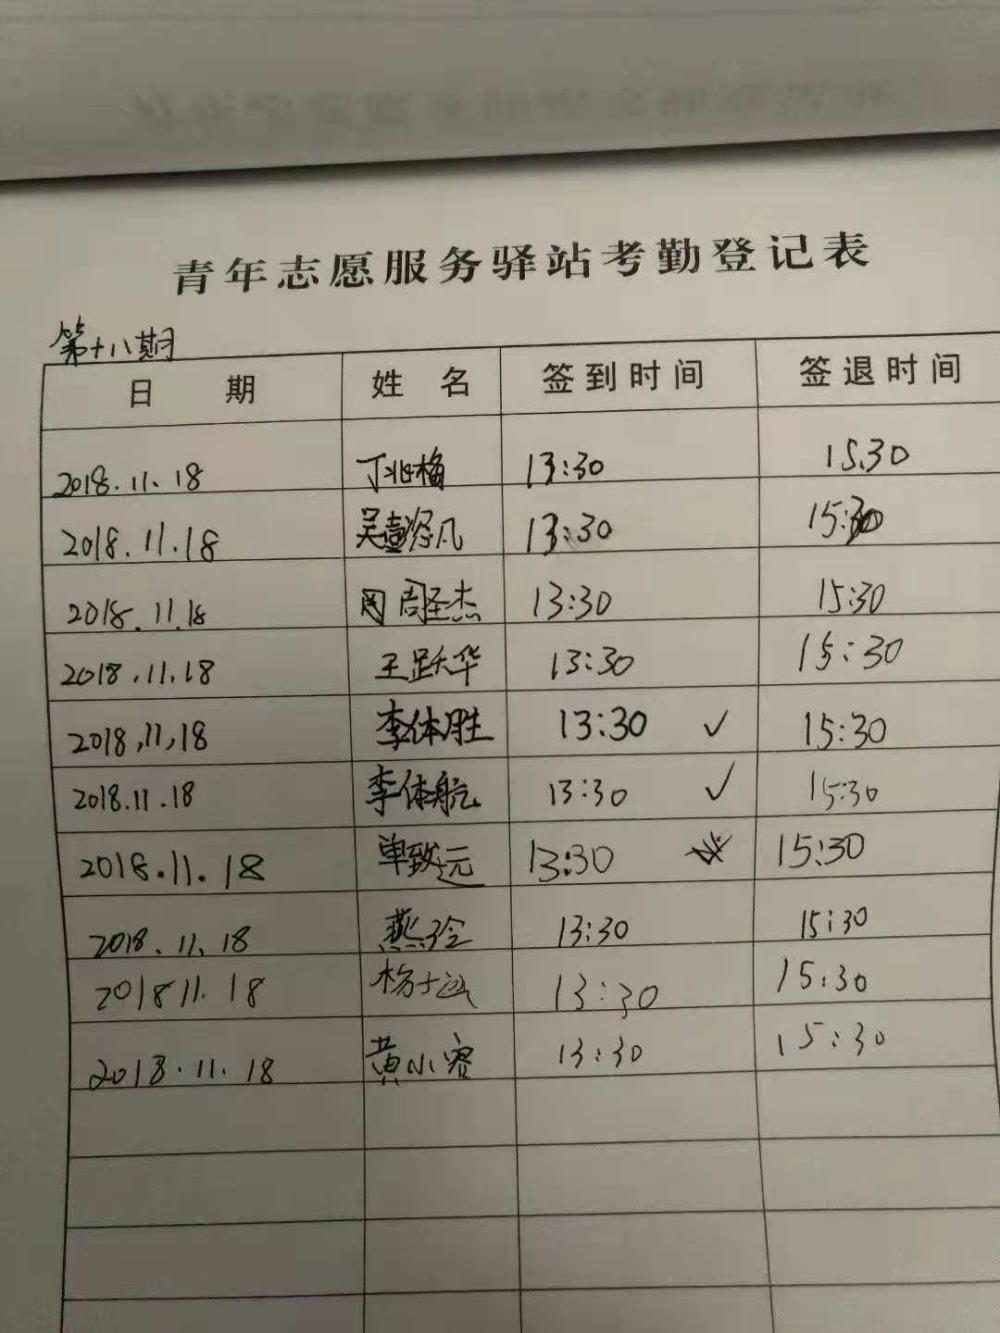 青年志愿服务驿站考勤登记表
第十八期
日期 姓名 签到时间 签退时间
2018.11.18 丁兆梅 13:30 15.30
2018.11.18 吴 凡 13:30 15:30
2018.11.18 周圣杰 13:30 15:30
2018.11.18 王跃华 13:30 15:30
2018,11,18 李体胜 13:30 ✓ 15:30
2018.11.18 李体航 13:30 ✓ 15:30
2018.11.18 单致远 13:30 15:30
2018.11.18 燕玲 13:30 15:30
2018 11.18 杨 13:30 15:30
2018.11.18 黄小容 13:30 15:30